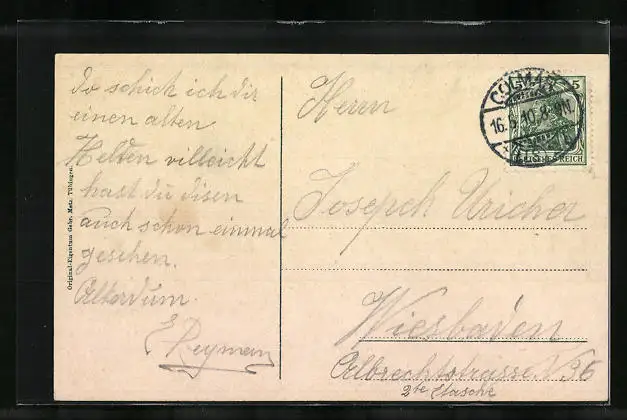 do schick ich dir
einen alten
Helden villeicht
hast du disen
auch schon einmal
gesehen.
E Reyman
Original-Eigentum Gebr. Metz, Tübingen.
Herrn
Josepch
Wiesbaden
Albrechtstrasse 36
2te Etasche
COLMAR
16.
10. 8-9N.
5
DEUTSCHES REICH